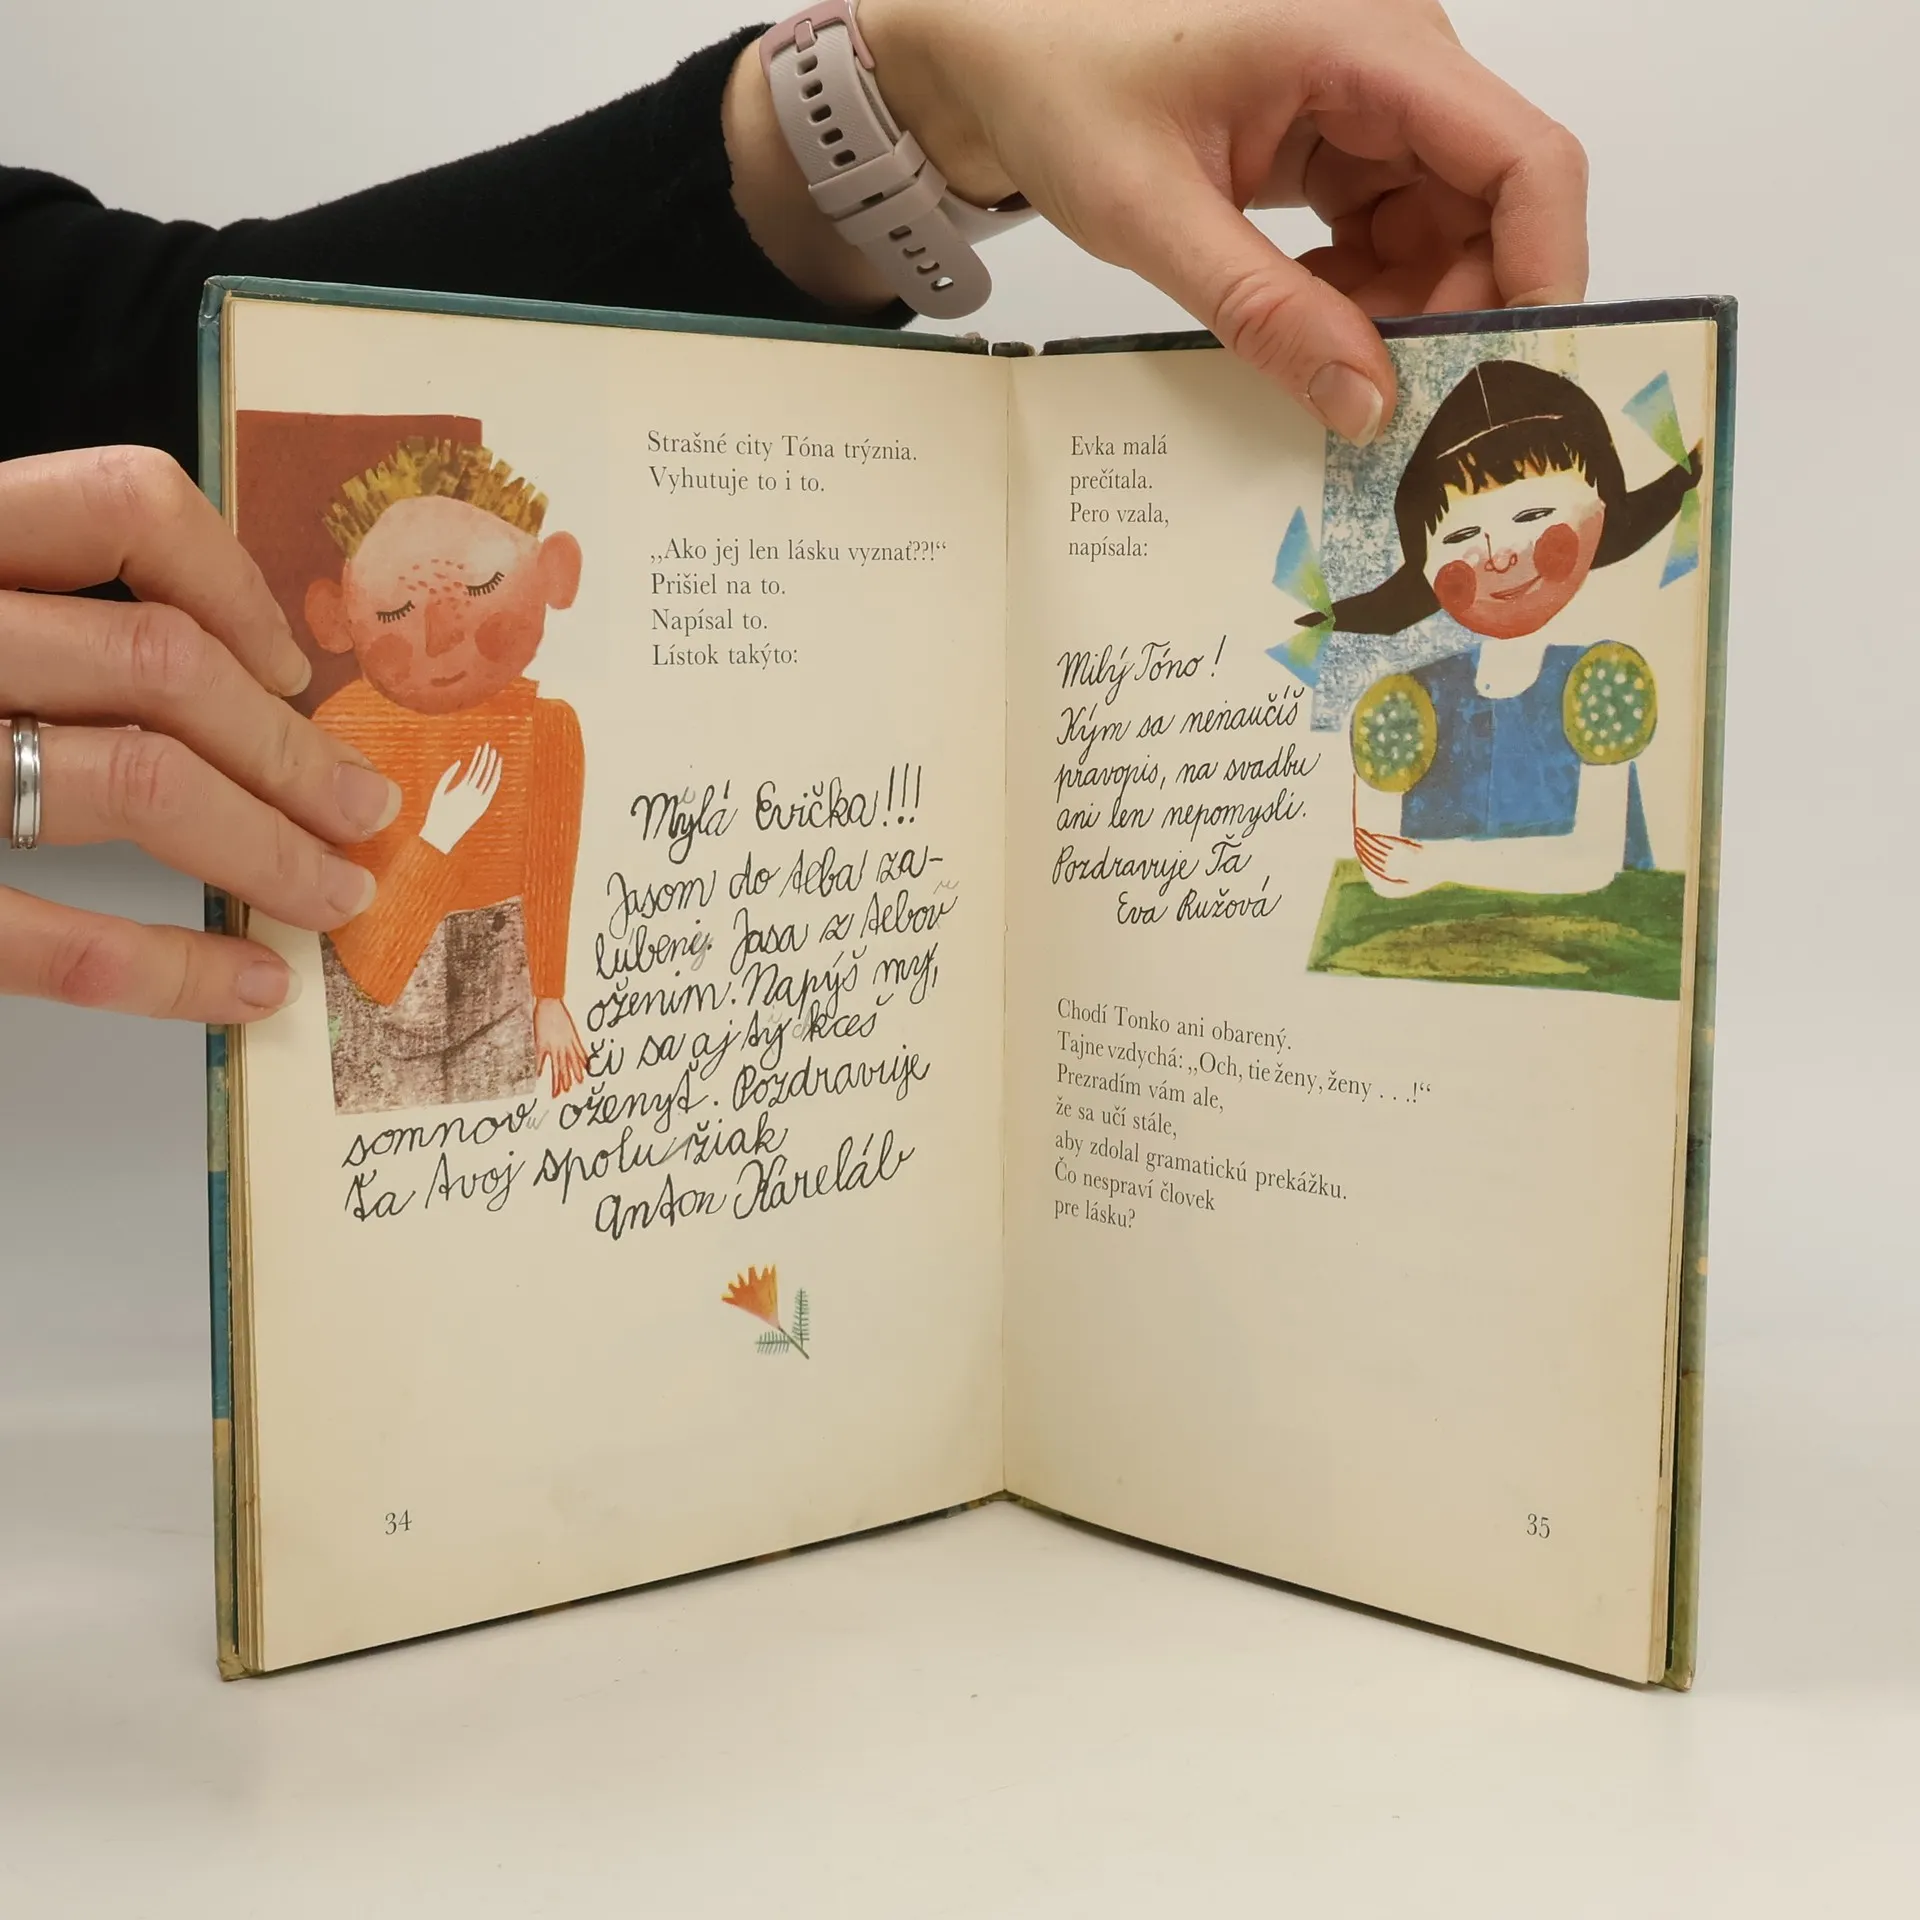 Strašné city Tóna trýznia.
Vyhutuje to i to.
„Ako jej len lásku vyznať??!“
Prišiel na to.
Napísal to.
Lístok takýto:
Mylá Evička!!!
Jasom do teba za-
lúbený. Jasa z tebov
ožením. Napýš my,
či sa aj tý kceš
somnov oženyť. Pozdravuje
ťa tvoj spolu žiak
Anton Kareláb
34
Evka malá
prečítala.
Pero vzala,
napísala:
Milý Tóno!
Kým sa nenaučíš
pravopis, na svadbu
ani len nepomysli.
Pozdravuje Ťa
Eva Ružová
Chodí Tonko ani obarený.
Tajne vzdychá: „Och, tie ženy, ženy . . .!“
Prezradím vám ale,
že sa učí stále,
aby zdolal gramatickú prekážku.
Čo nespraví človek
pre lásku?
35